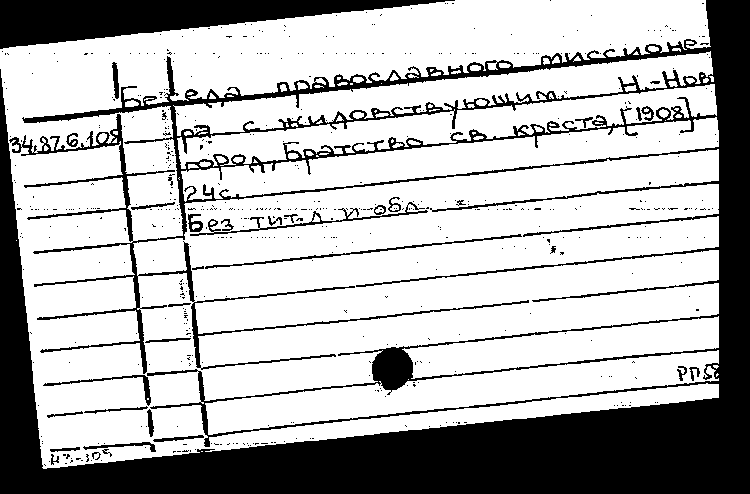 Беседа православного миссионе-
34.87.6.108 ра с жидовствующим. Н.-Нов-
город, Братство св. креста, [1908].
24с.
Без тит.л. и обл.
РП58
НЗ-105